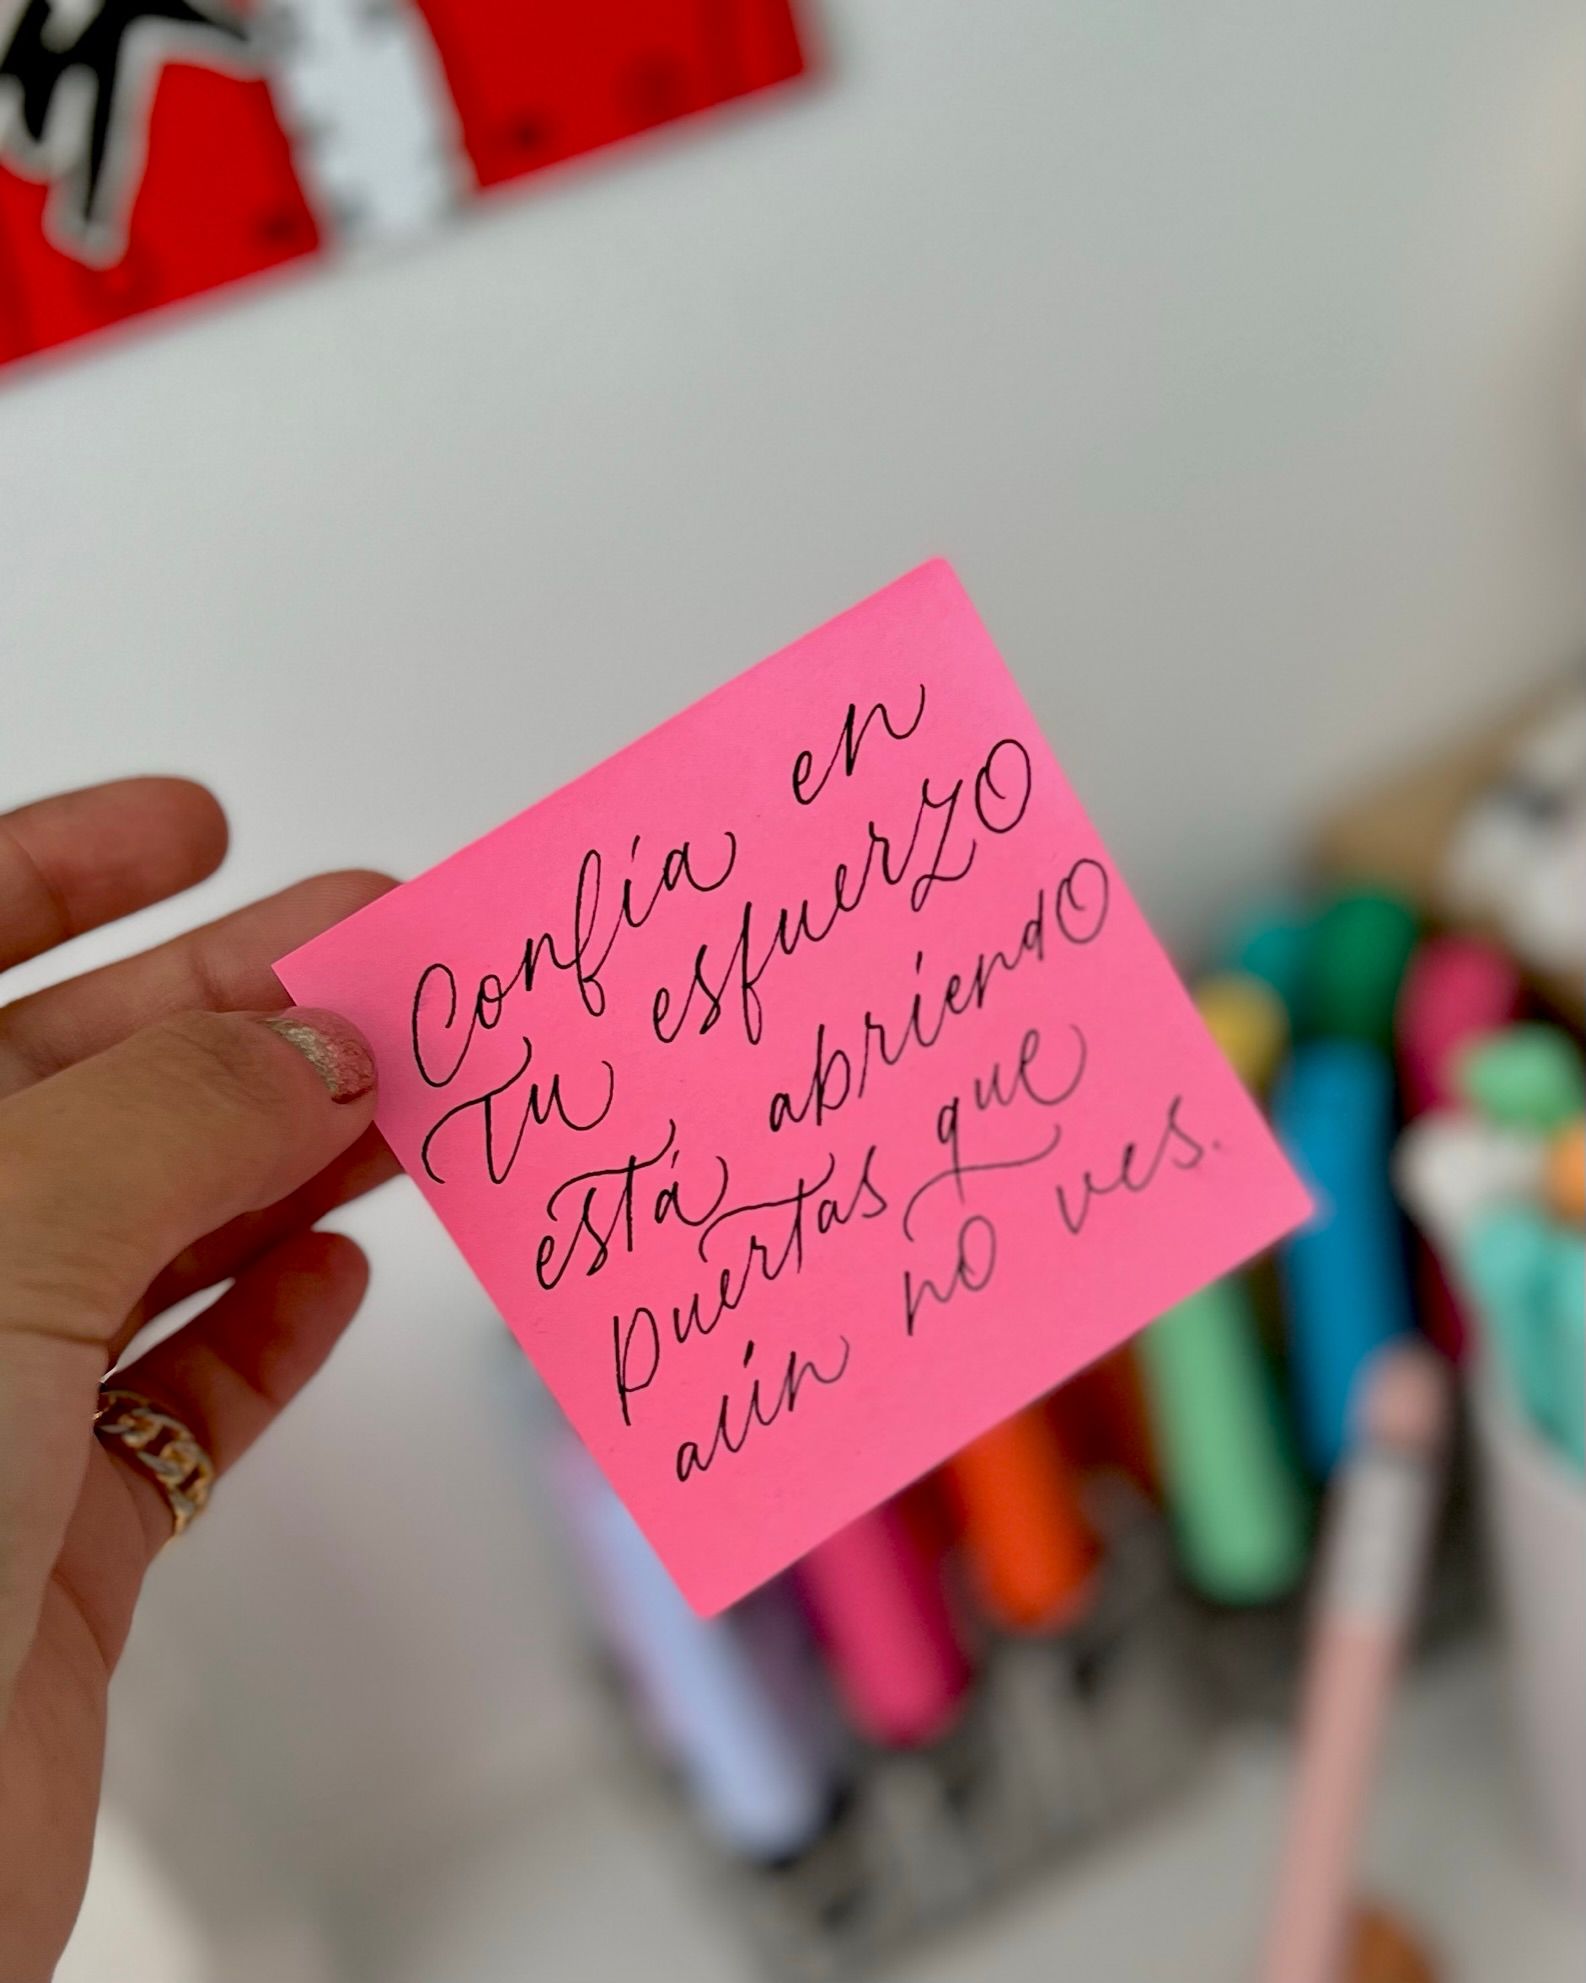 Confía en
tu esfuerzo
está abriendo
puertas que
aún no ves.